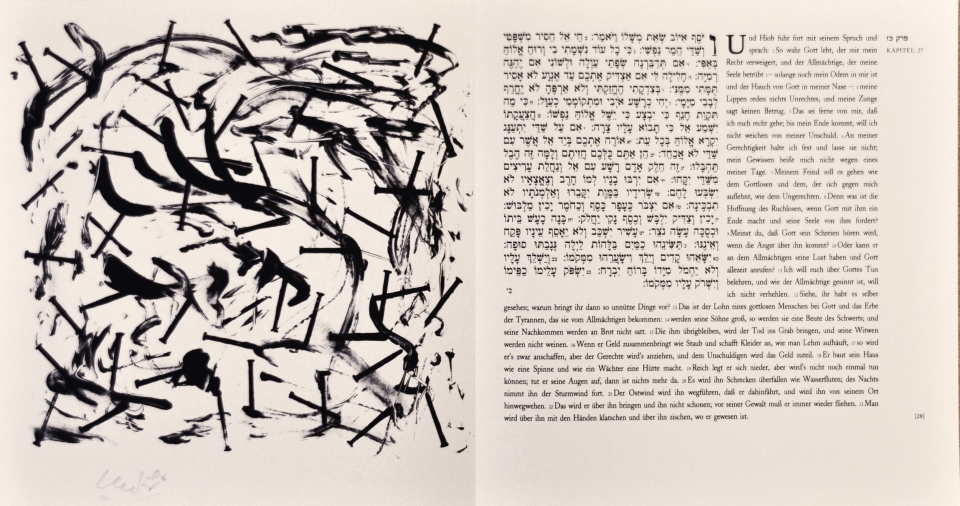 ויֹּסֶף אִיּוֹב שְׂאֵת מְשָׁלוֹ וַיֹּאמַר: חַי אֵל הֵסִיר מִשְׁפָּטִי
וְשַׁדַּי הֵמַר נַפְשִׁי: כִּי כָל עוֹד נִשְׁמָתִי בִי וְרוּחַ אֱלוֹהַּ
בְּאַפִּי: אִם תְּדַבֵּרְנָה שְׂפָתַי עַוְלָה וּלְשׁוֹנִי אִם יֶהְגֶּה
רְמִיָּה: חָלִילָה לִּי אִם אַצְדִּיק אֶתְכֶם עַד אֶגְוָע לֹא אָסִיר
תֻּמָּתִי מִמֶּנִּי: בְּצִדְקָתִי הֶחֱזַקְתִּי וְלֹא אַרְפֶּהָ לֹא יֶחֱרַף
לְבָבִי מִיָּמָי: יְהִי כְרָשָׁע אֹיְבִי וּמִתְקוֹמְמִי כְעַוָּל: כִּי מַה
תִּקְוַת חָנֵף כִּי יִבְצָע כִּי יֵשֶׁל אֱלוֹהַּ נַפְשׁוֹ: הֲצַעֲקָתוֹ
יִשְׁמַע אֵל כִּי תָבוֹא עָלָיו צָרָה: אִם עַל שַׁדַּי יִתְעַנָּג
יִקְרָא אֱלוֹהַּ בְּכָל עֵת: אוֹרֶה אֶתְכֶם בְּיַד אֵל אֲשֶׁר עִם
שַׁדַּי לֹא אֲכַחֵד: הֵן אַתֶּם כֻּלְּכֶם חֲזִיתֶם וְלָמָּה זֶּה הֶבֶל
תֶּהְבָּלוּ: זֶה חֵלֶק אָדָם רָשָׁע עִם אֵל וְנַחֲלַת עָרִיצִים
מִשַּׁדַּי יִקָּחוּ: אִם יִרְבּוּ בָנָיו לְמוֹ חָרֶב וְצֶאֱצָאָיו לֹא
יִשְׂבְּעוּ לָחֶם: שְׂרִידָיו בַּמָּוֶת יִקָּבֵרוּ וְאַלְמְנֹתָיו לֹא
תִבְכֶּינָה: אִם יִצְבֹּר כֶּעָפָר כָּסֶף וְכַחֹמֶר יָכִין מַלְבּוּשׁ:
יָכִין וְצַדִּיק יִלְבָּשׁ וְכֶסֶף נָקִי יַחֲלֹק: בָּנָה כָעָשׁ בֵּיתוֹ
וּכְסֻכָּה עָשָׂה נֹצֵר: עָשִׁיר יִשְׁכַּב וְלֹא יֵאָסֵף עֵינָיו פָּקַח
וְאֵינֶנּוּ: תַּשִּׂיגֵהוּ כַמַּיִם בַּלָּהוֹת לַיְלָה גְּנָבַתּוּ סוּפָה:
יִשָּׂאֵהוּ קָדִים וְיֵלַךְ וִישָׂעֲרֵהוּ מִמְּקֹמוֹ: וְיַשְׁלֵךְ עָלָיו
וְלֹא יַחְמֹל מִיָּדוֹ בָּרוֹחַ יִבְרָח: יִשְׂפֹּק עָלֵימוֹ כַפֵּימוֹ
וְיִשְׁרֹק עָלָיו מִמְּקֹמוֹ:
כי
פרק כז
KAPITEL 27
Und Hiob fuhr fort mit seinem Spruch und
sprach: 2 So wahr Gott lebt, der mir mein
Recht verweigert, und der Allmächtige, der meine
Seele betrübt 3– solange noch mein Odem in mir ist
und der Hauch von Gott in meiner Nase –: 4 meine
Lippen reden nichts Unrechtes, und meine Zunge
sagt keinen Betrug. 5 Das sei ferne von mir, daß
ich euch recht gebe; bis mein Ende kommt, will ich
nicht weichen von meiner Unschuld. 6 An meiner
Gerechtigkeit halte ich fest und lasse sie nicht;
mein Gewissen beißt mich nicht wegen eines
meiner Tage. 7 Meinem Feind soll es gehen wie
dem Gottlosen und dem, der sich gegen mich
auflehnt, wie dem Ungerechten. 8 Denn was ist die
Hoffnung des Ruchlosen, wenn Gott mit ihm ein
Ende macht und seine Seele von ihm fordert?
9 Meinst du, daß Gott sein Schreien hören wird,
wenn die Angst über ihn kommt? 10 Oder kann er
an dem Allmächtigen seine Lust haben und Gott
allezeit anrufen? 11 Ich will euch über Gottes Tun
belehren, und wie der Allmächtige gesinnt ist, will
ich nicht verhehlen. 12 Siehe, ihr habt es selber
gesehen; warum bringt ihr dann so unnütze Dinge vor? 13 Das ist der Lohn eines gottlosen Menschen bei Gott und das Erbe
der Tyrannen, das sie vom Allmächtigen bekommen: 14 werden seine Söhne groß, so werden sie eine Beute des Schwerts; und
seine Nachkommen werden an Brot nicht satt. 15 Die ihm übrigbleiben, wird der Tod ins Grab bringen, und seine Witwen
werden nicht weinen. 16 Wenn er Geld zusammenbringt wie Staub und schafft Kleider an, wie man Lehm aufhäuft, 17 so wird
er's zwar anschaffen, aber der Gerechte wird's anziehen, und dem Unschuldigen wird das Geld zuteil. 18 Er baut sein Haus
wie eine Spinne und wie ein Wächter eine Hütte macht. 19 Reich legt er sich nieder, aber wird's nicht noch einmal tun
können; tut er seine Augen auf, dann ist nichts mehr da. 20 Es wird ihn Schrecken überfallen wie Wasserfluten; des Nachts
nimmt ihn der Sturmwind fort. 21 Der Ostwind wird ihn wegführen, daß er dahinfährt, und wird ihn von seinem Ort
hinwegwehen. 22 Das wird er über ihn bringen und ihn nicht schonen; vor seiner Gewalt muß er immer wieder fliehen. 23 Man
wird über ihn mit den Händen klatschen und über ihn zischen, wo er gewesen ist.
[28]